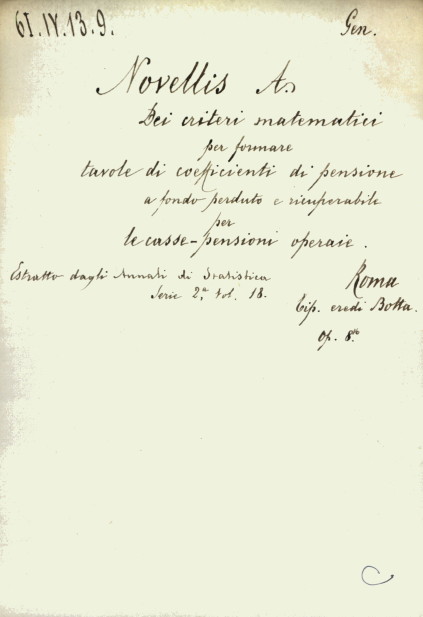 61.IV.13.9.
Gen.
Novellis A.
Dei criteri matematici
per formare
tavole di coefficienti di pensione
a fondo perduto e ricuperabile
per
le casse-pensioni operaie.
Estratto dagli Annali di Statistica
Serie 2.a Vol. 18.
Roma
Tip. eredi Botta.
Op. 8.o